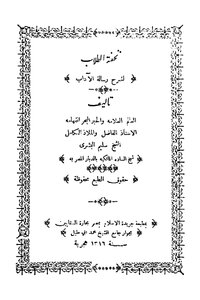 تحفة الطلاب
لشرح رسالة الآداب
تأليف
العالم العلامه والحبر البحر الفهامه
الاستاذ الفاضل والملاذ الكامل
الشيخ سليم البشرى
شيخ السادة المالكيه بالديار المصريه
حقوق الطبع محفوظة
بمطبعة جريدة الاسلام بمصر بحارة
بجوار جامع الشيخ
سنة ١٣١٦ هجرية